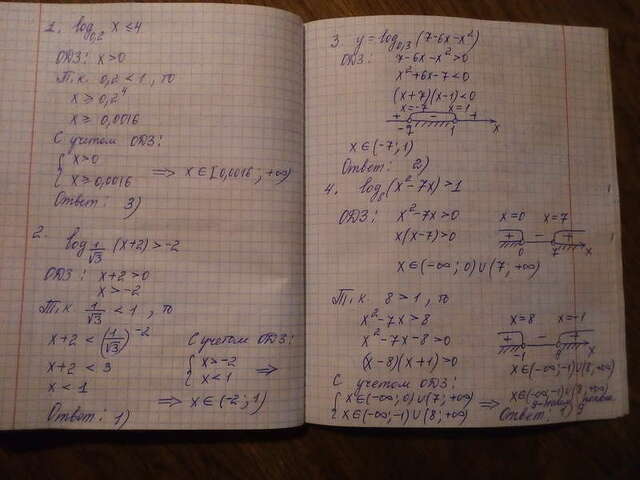 1. log₀,₂ x ≤ 4
ОДЗ: x > 0
Т.к. 0,2 < 1, то
x ≥ 0,2⁴
x ≥ 0,0016
С учетом ОДЗ:
{ x > 0
{ x ≥ 0,0016 ⟹ x ∈ [0,0016; +∞)
Ответ: 3)
2.
log_{1/√3} (x+2) > -2
ОДЗ: x+2 > 0
x > -2
Т.к. 1/√3 < 1, то
x+2 < (1/√3)⁻²
x+2 < 3
x < 1
С учетом ОДЗ:
{ x > -2
{ x < 1 ⟹
⟹ x ∈ (-2; 1)
Ответ: 1)
3. y = log₀,₃ (7-6x-x²)
ОДЗ: 7-6x-x² > 0
x²+6x-7 < 0
(x+7)(x-1) < 0
x=-7 x=1
+ - +
-7 1 x
x ∈ (-7; 1)
Ответ: 2)
4. log₈ (x²-7x) > 1
ОДЗ: x²-7x > 0
x(x-7) > 0
x=0 x=7
+ - +
0 7 x
x ∈ (-∞; 0) ∪ (7; +∞)
Т.к. 8 > 1, то
x²-7x > 8
x²-7x-8 > 0
(x-8)(x+1) > 0
x=8 x=-1
+ - +
-1 8 x
x ∈ (-∞; -1) ∪ (8; +∞)
С учетом ОДЗ:
{ x ∈ (-∞; 0) ∪ (7; +∞)
{ x ∈ (-∞; -1) ∪ (8; +∞) ⟹ x ∈ (-∞; -1) ∪ (8; +∞)
Ответ: 9